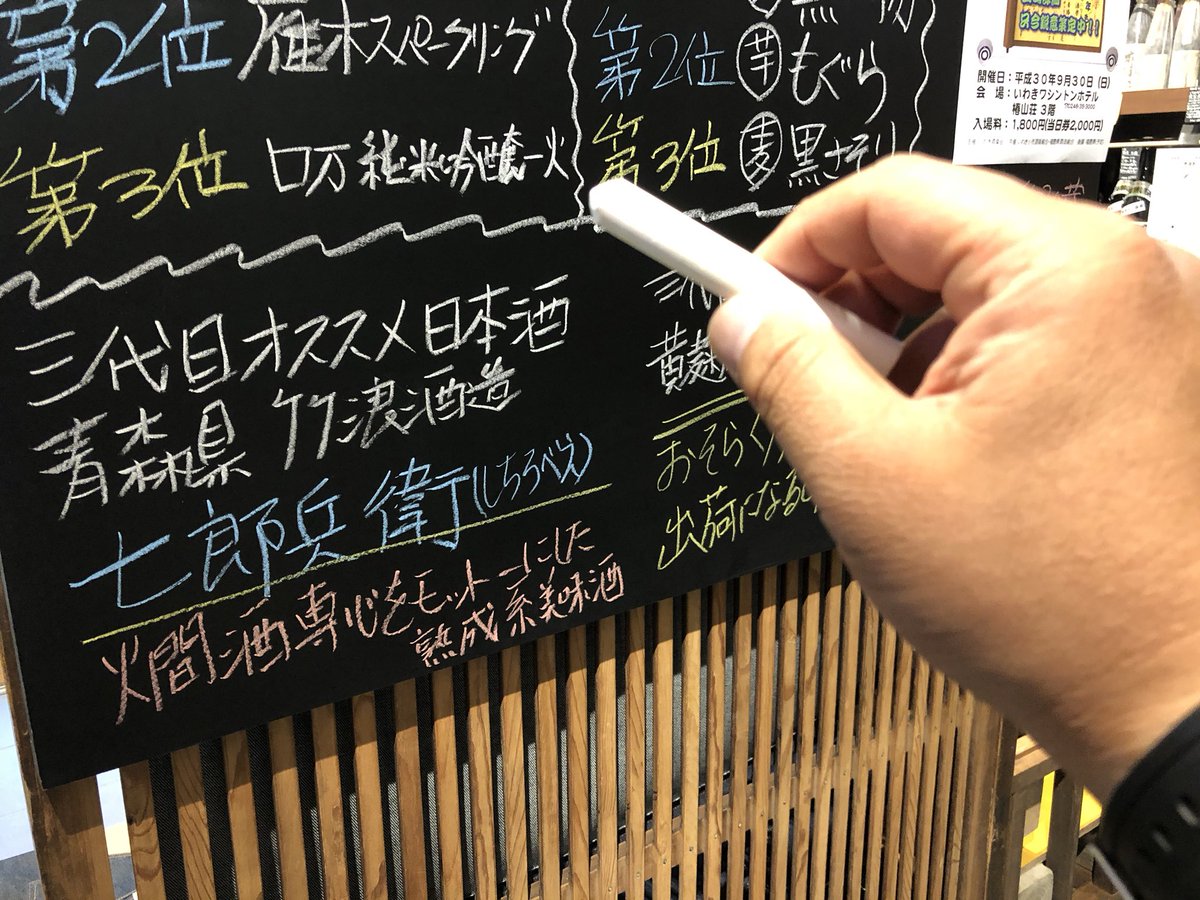 第2位 雁木スパークリング
第3位 ロ万 純米吟醸一火
第2位 芋 もぐら
第3位 麦 黒さそり
三代目オススメ日本酒
青森県 竹浪酒造
七郎兵衛(しちろべえ)
燗酒専心をモットーにした
熟成系美味酒
三代
黄麹
おそらく
出荷になる
開催日：平成30年9月30日(日)
会　場：いわきワシントンホテル
椿山荘 3階
入場料：1,800円(当日券2,000円)